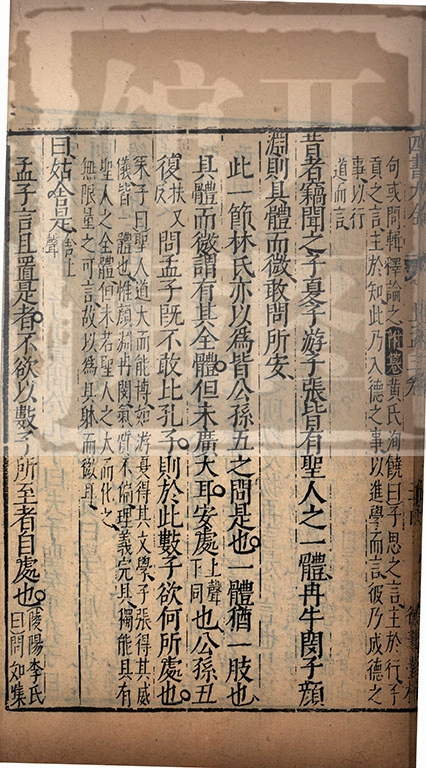 句或問輯釋論之附纂黃氏洵饒曰子思之言主於行子
貢之言主於知此乃入德之事以進學而言彼乃成德之
事以行
道而言
昔者竊聞之子夏子游子張皆有聖人之一體冉牛閔子顏
淵則具體而微敢問所安
此一節林氏亦以爲皆公孫丑之問是也一體猶一肢也
具體而微謂有其全體但未廣大耳安處上聲下同也公孫丑
復扶又反問孟子既不敢比孔子則於此數子欲何所處也
朱子曰聖人道大而能博如游夏得其文學子張得其威
儀皆一體也惟顏淵冉閔氣質不偏理義完具獨能具有
聖人之全體但未若聖人之大而化之
無限量之可言故以爲具體而微耳
曰姑舍是舍上聲
孟子言且置是者不欲以數子所至者自處也陵陽李氏曰問如集